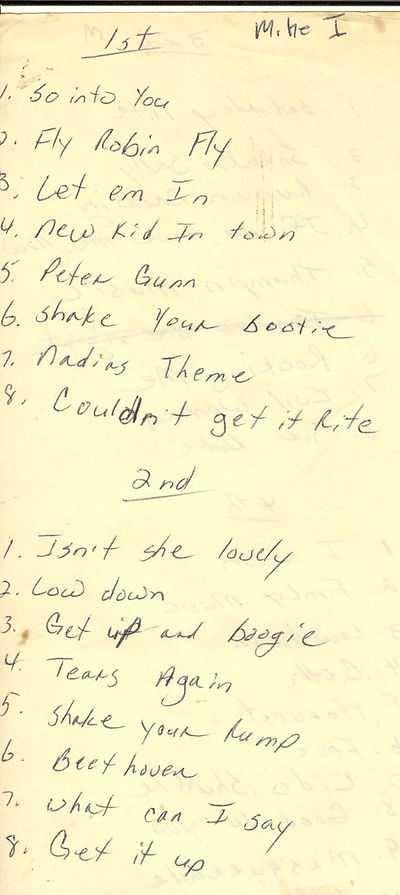 Mike I
1st
1. So into You
2. Fly Robin Fly
3. Let em In
4. New Kid In town
5. Peter Gunn
6. Shake Your bootie
7. Nadias Theme
8. Couldn't get it Rite
2nd
1. Isn't she lovely
2. Low down
3. Get up and boogie
4. Tears Again
5. Shake your Rump
6. Beethoven
7. What can I say
8. Get it up